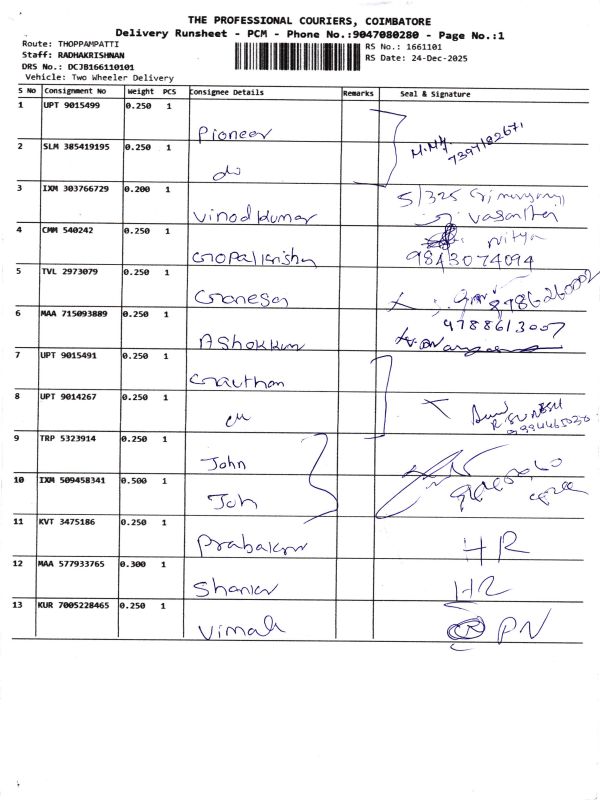 THE PROFESSIONAL COURIERS, COIMBATORE
Delivery Runsheet - PCM - Phone No.:9047080280 - Page No.:1
Route: THOPPAMPATTI
Staff: RADHAKRISHNAN
DRS No.: DCJB166110101
Vehicle: Two Wheeler Delivery
RS No.: 1661101
RS Date: 24-Dec-2025
S No Consignment No Weight PCS Consignee Details Remarks Seal & Signature
1 UPT 9015499 0.250 1 Pioneer
2 SLM 385419195 0.250 1 do
7397182671
3 IXM 303766729 0.200 1 Vinodkumar 5/325
Vasantha
4 CMM 540242 0.250 1 Gopalkrishn Nitya
9843074094
5 TVL 2973079 0.250 1 Ganesan
8786260002
6 MAA 715093889 0.250 1 Ashokkum 9788613007
7 UPT 9015491 0.250 1 Gauthan
8 UPT 9014267 0.250 1
9 TRP 5323914 0.250 1 John
10 IXM 509458341 0.500 1 Joh
11 KVT 3475186 0.250 1 Prabakar HR
12 MAA 577933765 0.300 1 Shankar HR
13 KUR 7005228465 0.250 1 Vimal PN